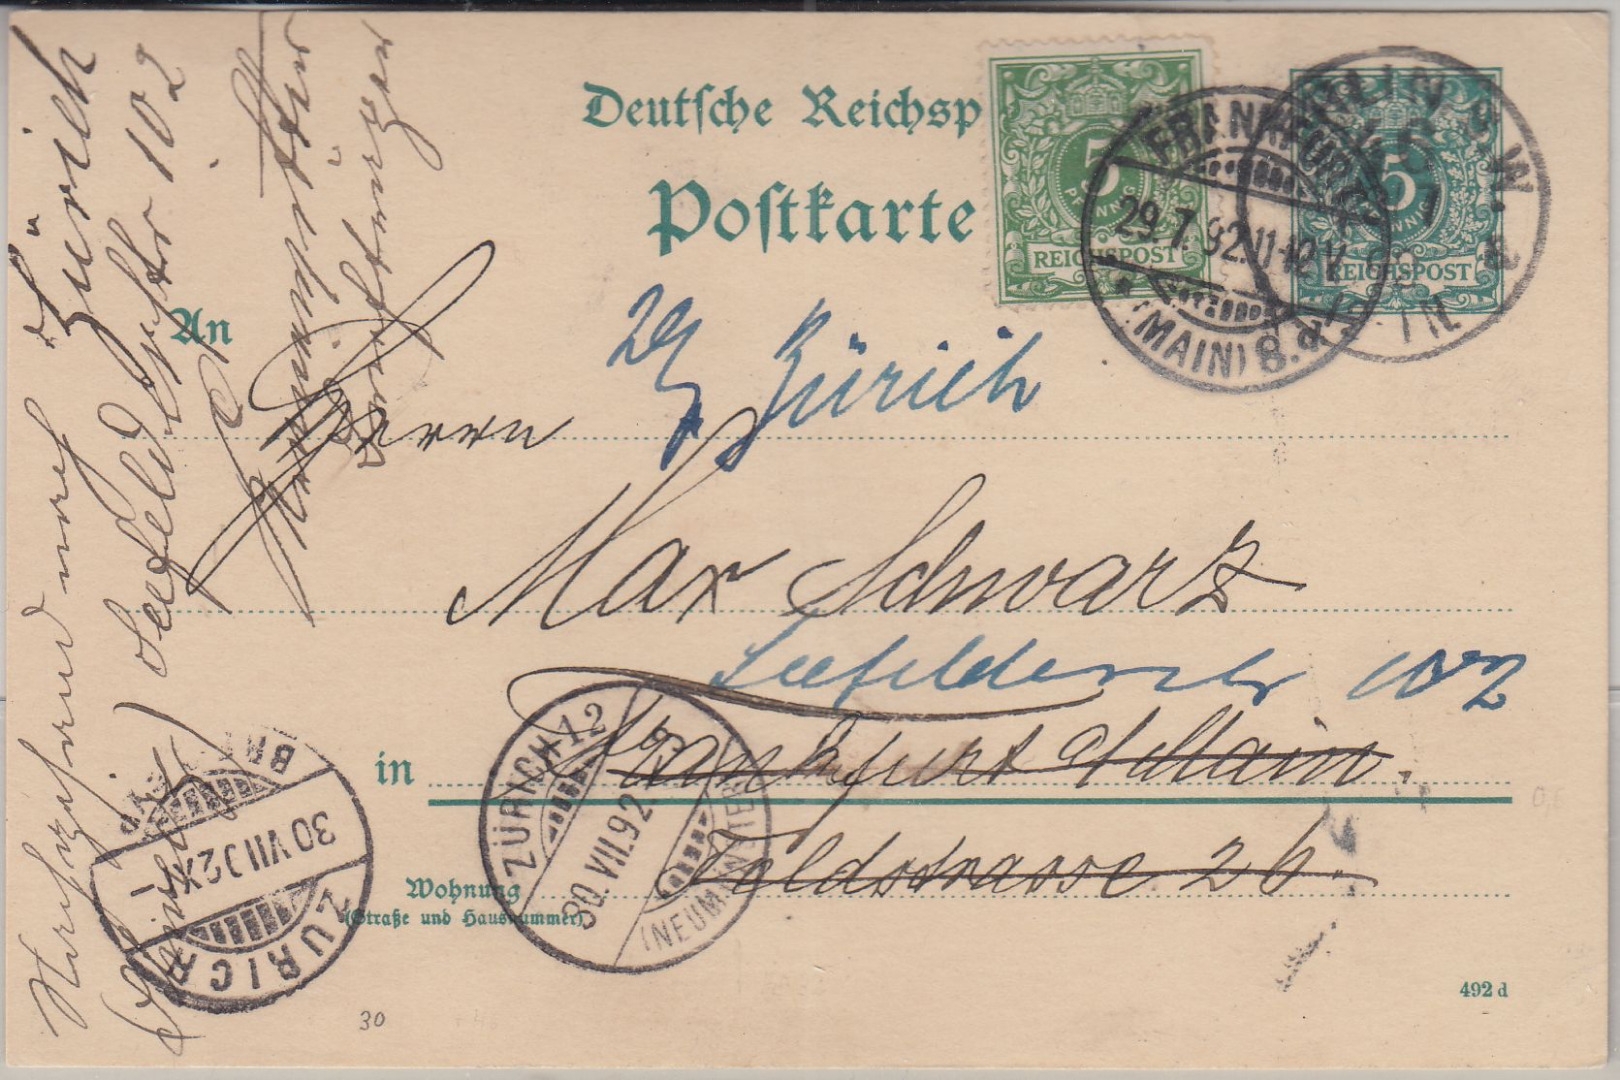 Deutsche Reichsp
Postkarte
5
PFENNIG
REICHSPOST
5
REICHSPOST
FRANKFURT
29.7.92.11-12V.
(MAIN) 8.d
S.W.
An
29/7 Zürich
Herrn
Max Schwarz
Seefelderstr 102
in Frankfurt a/Main.
Feldstrasse 26.
Wohnung
(Straße und Hausnummer)
ZÜRICH 12
30.VII.92
(NEUMÜNSTER)
ZÜRICH
30 VII 92 X
BR
Nachzusend nach
Zürich
Seefeldstr 102
492 d
30